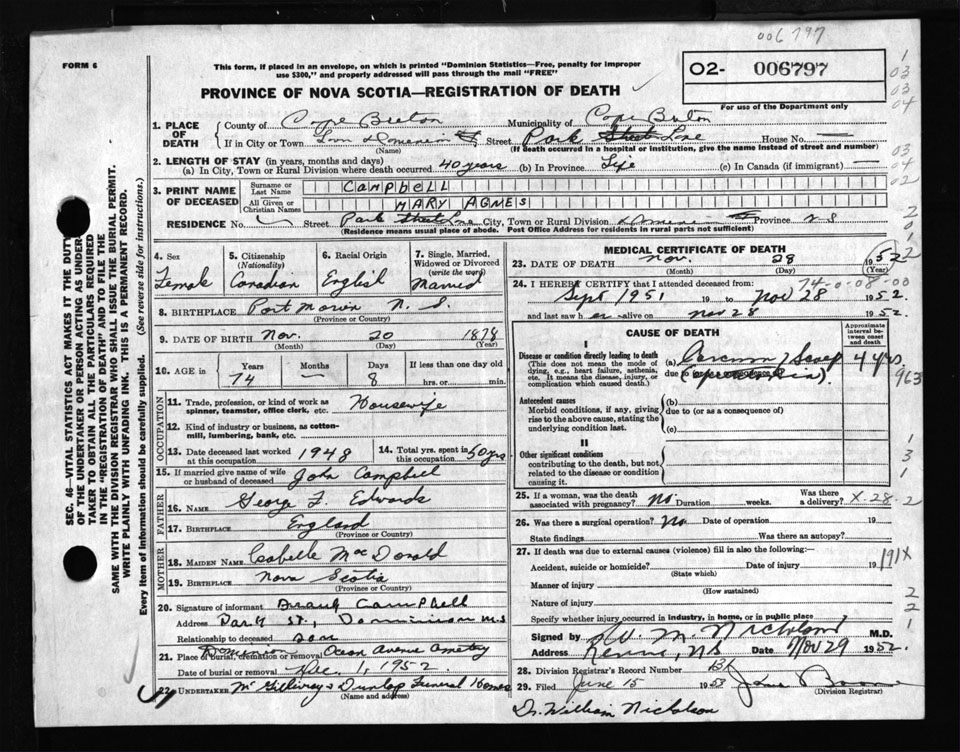 006797
FORM 6
This form, if placed in an envelope, on which is printed "Dominion Statistics—Free, penalty for improper
use $300," and properly addressed will pass through the mail "FREE"
PROVINCE OF NOVA SCOTIA—REGISTRATION OF DEATH
02- 006797
For use of the Department only
1. PLACE OF DEATH
County of Cape Breton Municipality of Cape Breton
If in City or Town Street Park Street House No. —
(Name) (If death occurred in a hospital or institution, give the name instead of street and number)
2. LENGTH OF STAY (in years, months and days)
(a) In City, Town or Rural Division where death occurred 40 years (b) In Province Life (c) In Canada (if immigrant) —
3. PRINT NAME OF DECEASED
Surname or Last Name CAMPBELL
All Given or Christian Names MARY AGNES
RESIDENCE No. Street Park Street City, Town or Rural Division Province N S
(Residence means usual place of abode. Post Office Address for residents in rural parts not sufficient)
4. Sex Female
5. Citizenship (Nationality) Canadian
6. Racial Origin English
7. Single, Married, Widowed or Divorced (write the word) Married
8. BIRTHPLACE Port Morien N. S.
(Province or Country)
9. DATE OF BIRTH Nov. 20 1878
(Month) (Day) (Year)
10. AGE in Years 74 Months — Days 8 If less than one day old hrs. or min.
OCCUPATION
11. Trade, profession, or kind of work as spinner, teamster, office clerk, etc. Housewife
12. Kind of industry or business, as cotton-mill, lumbering, bank, etc.
13. Date deceased last worked at this occupation 1948
14. Total yrs. spent in this occupation 50 yrs
15. If married give name of wife or husband of deceased John Campbell
FATHER
16. NAME George F. Edwards
17. BIRTHPLACE England
(Province or Country)
MOTHER
18. MAIDEN NAME Isabelle MacDonald
19. BIRTHPLACE Nova Scotia
(Province or Country)
20. Signature of informant Campbell
Address Park St., Dominion N.S
Relationship to deceased son
21. Place of burial, cremation or removal Dominion Ocean Avenue Cemetery
Date of burial or removal Dec. 1, 1952
22. UNDERTAKER McGillivray & Dunlop Funeral Home
(Name and address)
MEDICAL CERTIFICATE OF DEATH
23. DATE OF DEATH Nov. 28 1952
(Month) (Day) (Year)
74-0-08-00
24. I HEREBY CERTIFY that I attended deceased from:
Sept 1951 19 to Nov 28 1952
and last saw her alive on Nov 28 1952.
CAUSE OF DEATH
Approximate interval between onset and death
I
Disease or condition directly leading to death
(This does not mean the mode of dying, e.g., heart failure, asthenia, etc. It means the disease, injury, or complication which caused death.)
(a) Scalp 4 yrs
due to
963
Antecedent causes
Morbid conditions, if any, giving rise to the above cause, stating the underlying condition last.
(b)
due to (or as a consequence of)
(c)
II
Other significant conditions
contributing to the death, but not related to the disease or condition causing it.
25. If a woman, was the death associated with pregnancy? No. Duration weeks. Was there a delivery? X-28-2
26. Was there a surgical operation? No Date of operation 19
State findings Was there an autopsy?
27. If death was due to external causes (violence) fill in also the following:—
Accident, suicide or homicide? Date of injury 19 191X
(State which)
Manner of injury
(How sustained)
Nature of injury
Specify whether injury occurred in industry, in home, or in public place
Signed by W. M. Nicholson M.D.
Address NS Date Nov 29 1952.
28. Division Registrar's Record Number
29. Filed June 15 1953
(Division Registrar)
Dr. William Nicholson
SEC. 46—VITAL STATISTICS ACT MAKES IT THE DUTY
OF THE UNDERTAKER OR PERSON ACTING AS UNDER-
TAKER TO OBTAIN ALL THE PARTICULARS REQUIRED
IN THE "REGISTRATION OF DEATH" AND TO FILE THE
SAME WITH THE DIVISION REGISTRAR WHO SHALL ISSUE THE BURIAL PERMIT.
WRITE PLAINLY WITH UNFADING INK. THIS IS A PERMANENT RECORD.
Every item of information should be carefully supplied. (See reverse side for instructions.)